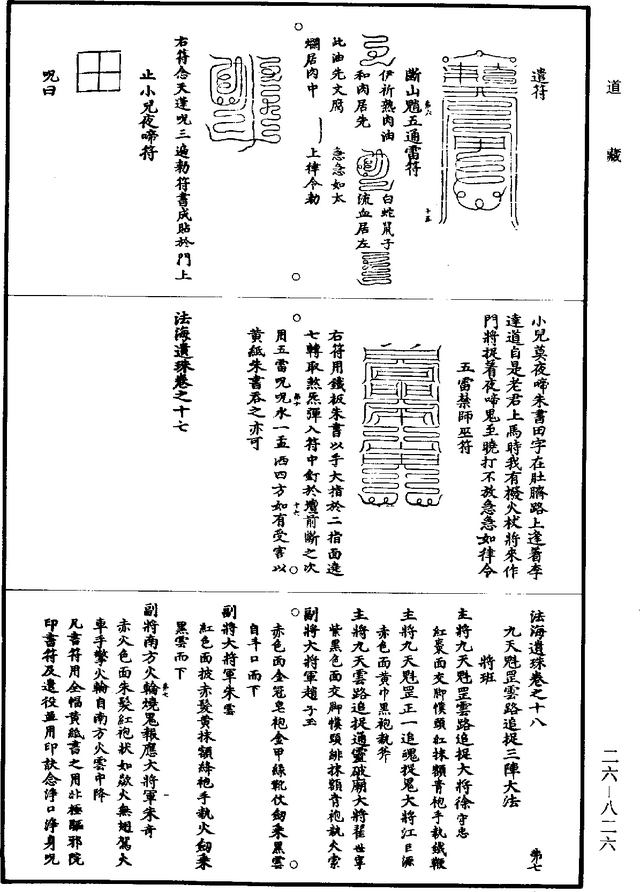 道藏
遣符
斷山魈五通雷符
伊祈熟肉油
和肉居先
此油先文腐
爛居肉中
白蛇鼠子
流血居左
急急如太
上律令勅
右符念天蓬咒三遍勅符書成貼於門上
止小兒夜啼符
咒曰
小兒莫夜啼朱書田字在肚臍路上逢着李
達道自是老君上馬時我有撥火杖將來作
門將捉着夜啼鬼至曉打不放急急如律令
五雷禁師巫符
右符用鐵板朱書以手大指於二指面遶
七轉取煞炁彈入符中釘於壇前斷之次
用五雷咒咒水一盂洒四方如有受害以
黃紙朱書吞之亦可
法海遺珠卷之十七
法海遺珠卷之十八
九天魁罡雲路追捉三陣大法
將班
主將九天魁罡雲路追捉大將徐守忠
紅棗面交脚幞頭紅抹額青袍手執鐵鞭
主將九天魁罡正一追魂捉鬼大將江巨源
赤色面黃巾黑袍執斧
主將九天雲路追捉通靈破廟大將翟世寧
紫黑色面交脚幞頭緋抹額青袍執火索
副將大將軍趙子玉
赤色面金冠皂袍金甲綠靴仗劒乘黑雲
自斗口而下
副將大將軍朱雲
紅色面披赤髮黃抹額絳袍手執火劒乘
黑雲而下
副將南方火輪燒鬼報應大將軍朱奇
赤火色面朱髮紅袍狀如欻火無翅駕火
車手擎火輪自南方火雲中降
凡書符用全幅黃紙書之用北極驅邪院
印書符及遣役並用印訣念淨口淨身咒
二六—八二六